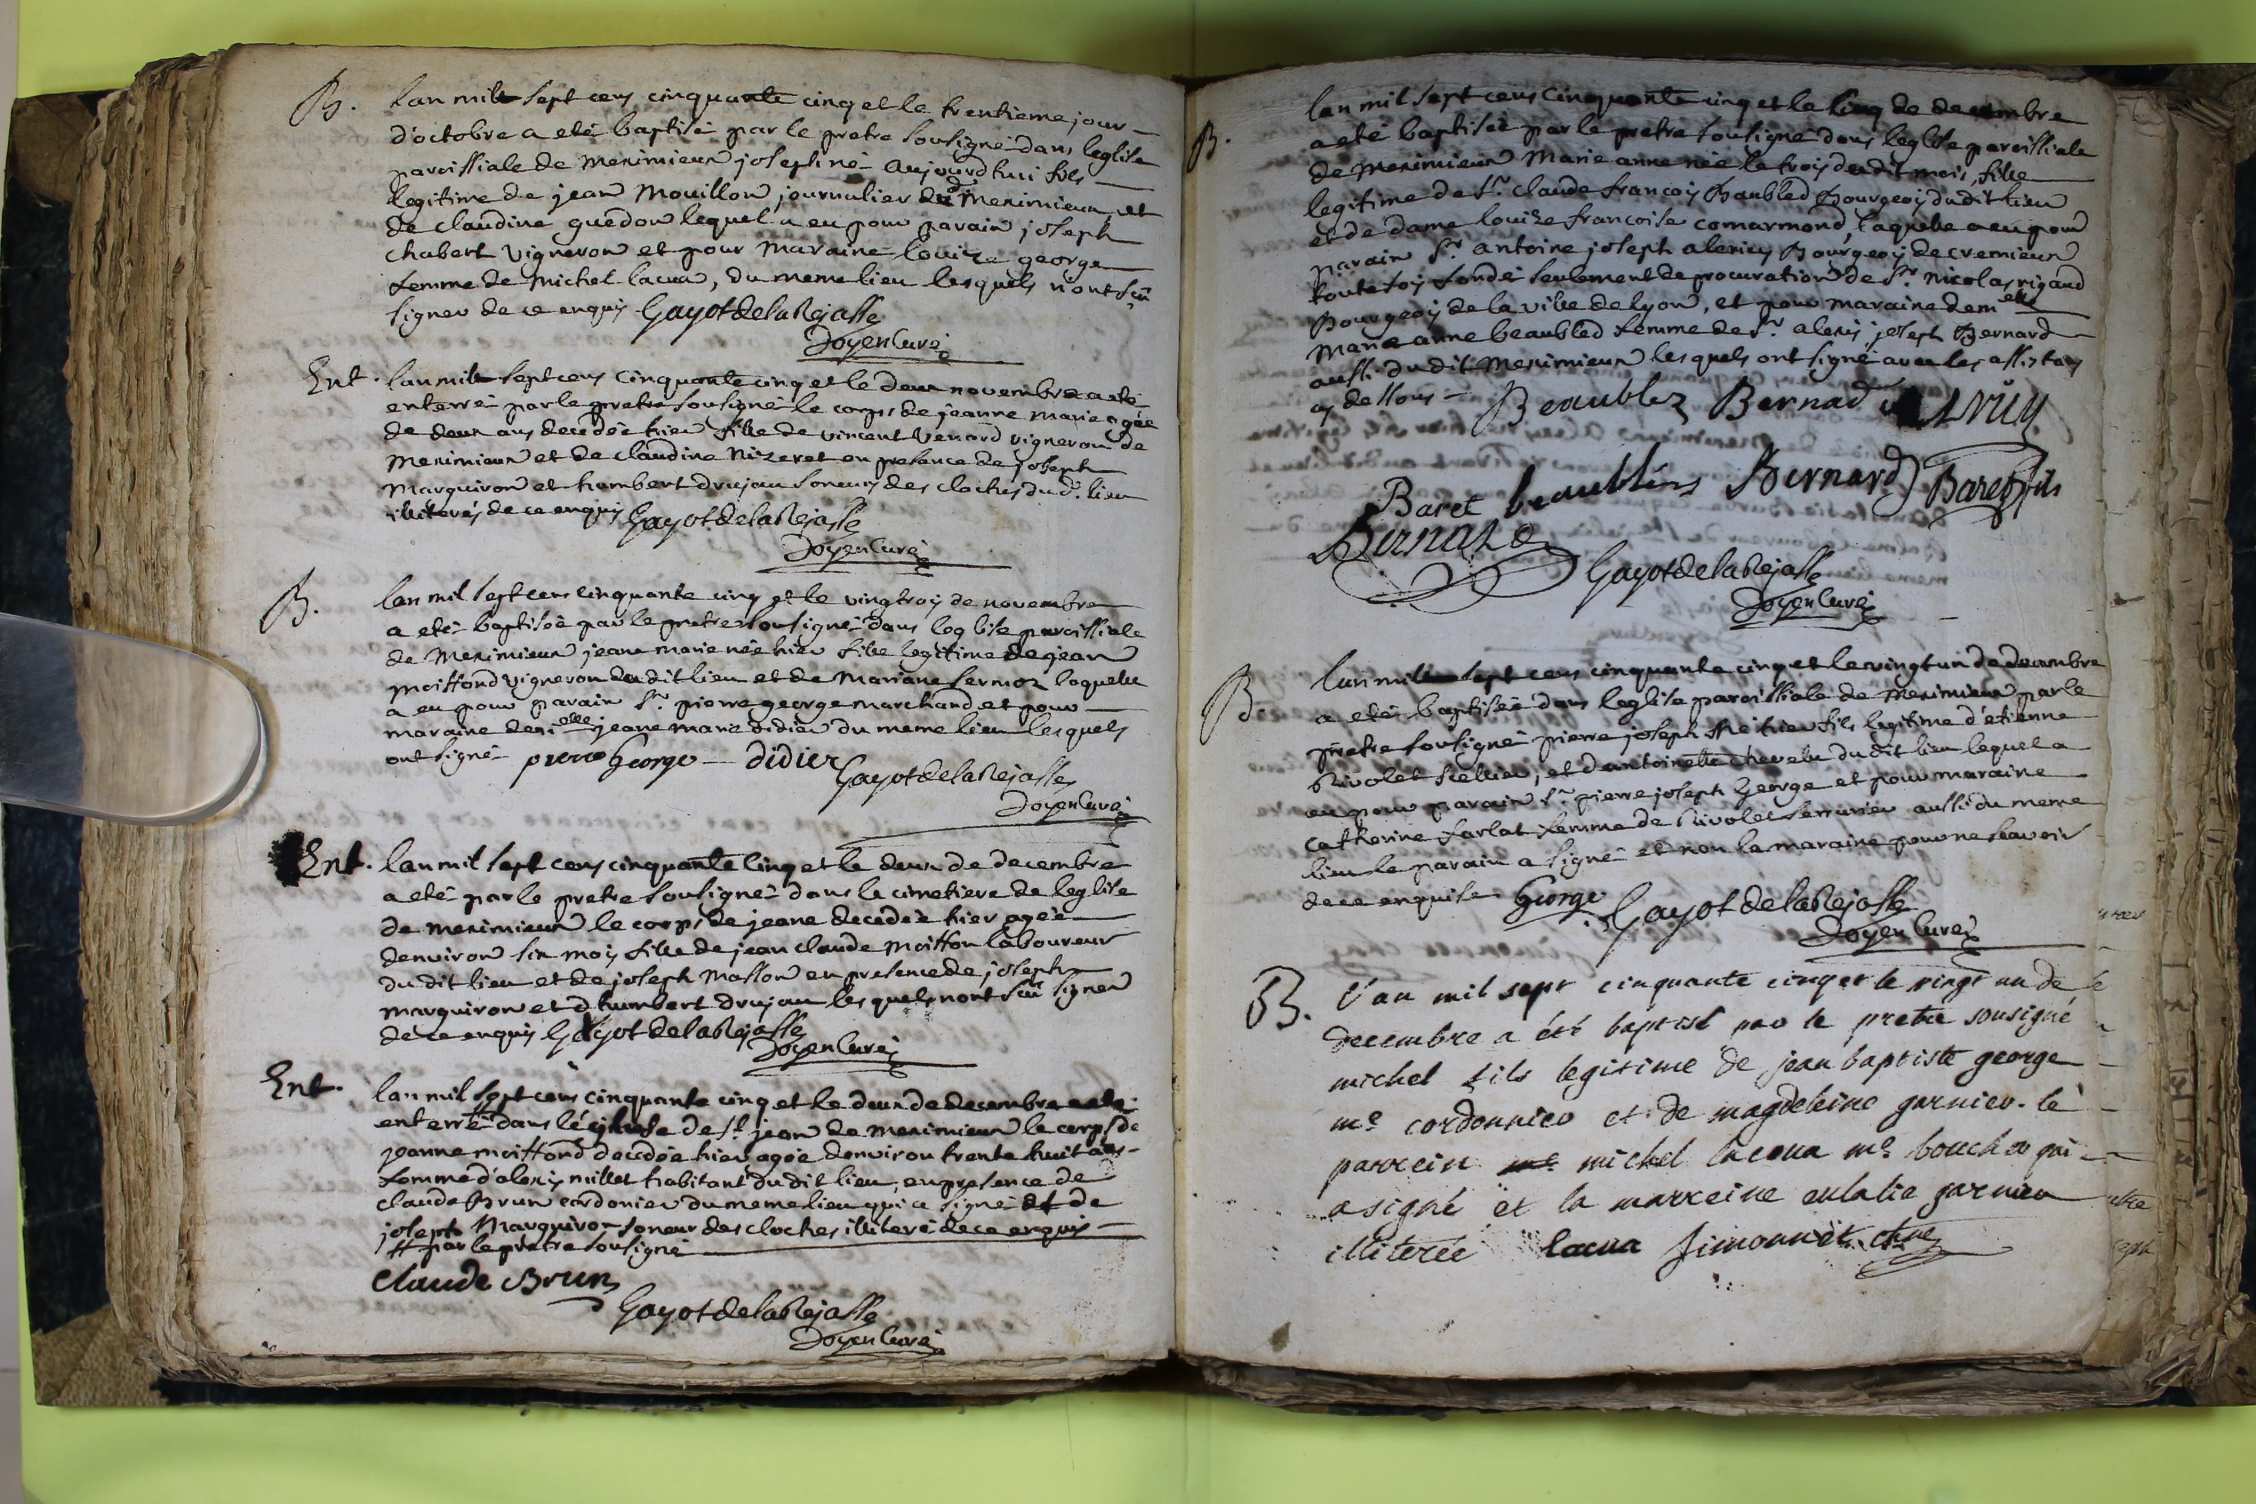 B. lan mil sept cens cinquante cinq et le trentieme jour
d'octobre a eté baptisé par le pretre sousigné dans leglise
paroissiale de meximieux joseph né aujourd'hui fils
legitime de jean mouillon journalier de meximieux et
de claudine guedon lequel a eu pour parain joseph
chabert vigneron et pour maraine louize george
femme de michel lacua, du meme lieu lesquels n'ont sçu
signer de ce enquis Gayot de la Rejasse
Doyen Curé
Ent. lan mil sept cens cinquante cinq et le deux novembre a eté
enterré par le pretre sousigné le corps de jeanne marie agée
de deux ans decedée hier fille de vincent venard vigneron de
meximieux et de claudine nizeret en presence de joseph
marquiron et humbert drujau soneurs des cloches du d. lieu
illiterés de ce enquis Gayot de la Rejasse
Doyen Curé
B. lan mil sept cens cinquante cinq et le vingtrois de novembre
a eté baptisée par le pretre sousigné dans leglise paroissiale
de meximieux jeane marie née hier fille legitime de jean
moiffond vigneron du dit lieu et de mariane fermoz laquelle
a eu pour parain sr. pierre george marchand et pour
maraine demielle jeane marie didier du meme lieu lesquels
ont signé pierre George didier Gayot de la Rejasse
Doyen Curé
Ent. lan mil sept cens cinquante cinq et le deux de decembre
a eté par le pretre sousigné dans le cimetiere de leglise
de meximieux le corps de jeane decedée hier agée
denviron six mois fille de jean claude moiffon laboureur
du dit lieu et de joseph masson en presence de joseph
marquiron et d'humbert drujau lesquels nont sçu signer
de ce enquis Gayot de la Rejasse
Doyen Curé
Ent. lan mil sept cens cinquante cinq et le deux de decembre a eté
enterré dans léglise de st. jean de meximieux le corps de
jeanne moiffond decedée hier agée denviron trente huit ans
femme d'alexis millet habitant du dit lieu, en presence de
claude Brun cordonier du meme lieu qui a signé et de
joseph Marquiron soneur des cloches illiteré de ce enquis
# par le pretre sousigné
Claude Brun
Gayot de la Rejasse
Doyen Curé
lan mil sept cens cinquante cinq et le cinq de decembre
B. a eté baptisée par le pretre sousigné dans leglise paroissiale
de meximieux Marie anne née le trois du dit mois, fille
legitime de sr. claude francois Baubled Bourgeois du dit lieu
et de dame louize francoise comarmond, laquelle a eu pour
parain sr. antoine joseph alericy Bourgeois de cremieux
toutefois fondé seulement de procuration de sr. nicolas rigaud
Bourgeois de la ville de lyon, et pour maraine demelle
Marie anne beaubled femme de sr. alexis joseph Bernard
aussi du dit meximieux lesquels ont signé avec les assistans
cy dessous Beaublez Bernad
Baret beaublens Bernard Baret fils
Bernard
Gayot de la Rejasse
Doyen Curé
B. lan mil sept cens cinquante cinq et le vingt un de decembre
a eté baptisée dans leglise paroissiale de meximieux par le
pretre sousigné pierre joseph né hier fils legitime d'etienne
Rivolet sellier, et d'antoinette chevelu du dit lieu lequel a
eu pour parain sr. pierre joseph George et pour maraine
catherine farlat femme de Rivolet serrurier aussi du meme
lieu le parain a signé et non la maraine pour ne sçavoir
de ce enquise George Gayot de la Rejasse
Doyen Curé
B. l'an mil sept cinquante cinq et le vingt un de
decembre a été baptisé par le pretre sousigné
michel fils legitime de jean baptiste george
me cordonnier et de magdeleine garnier. le
parrein michel lacoua me boucher qui
a signé et la marreine eulalie garnier
illiterée lacua Simonnet